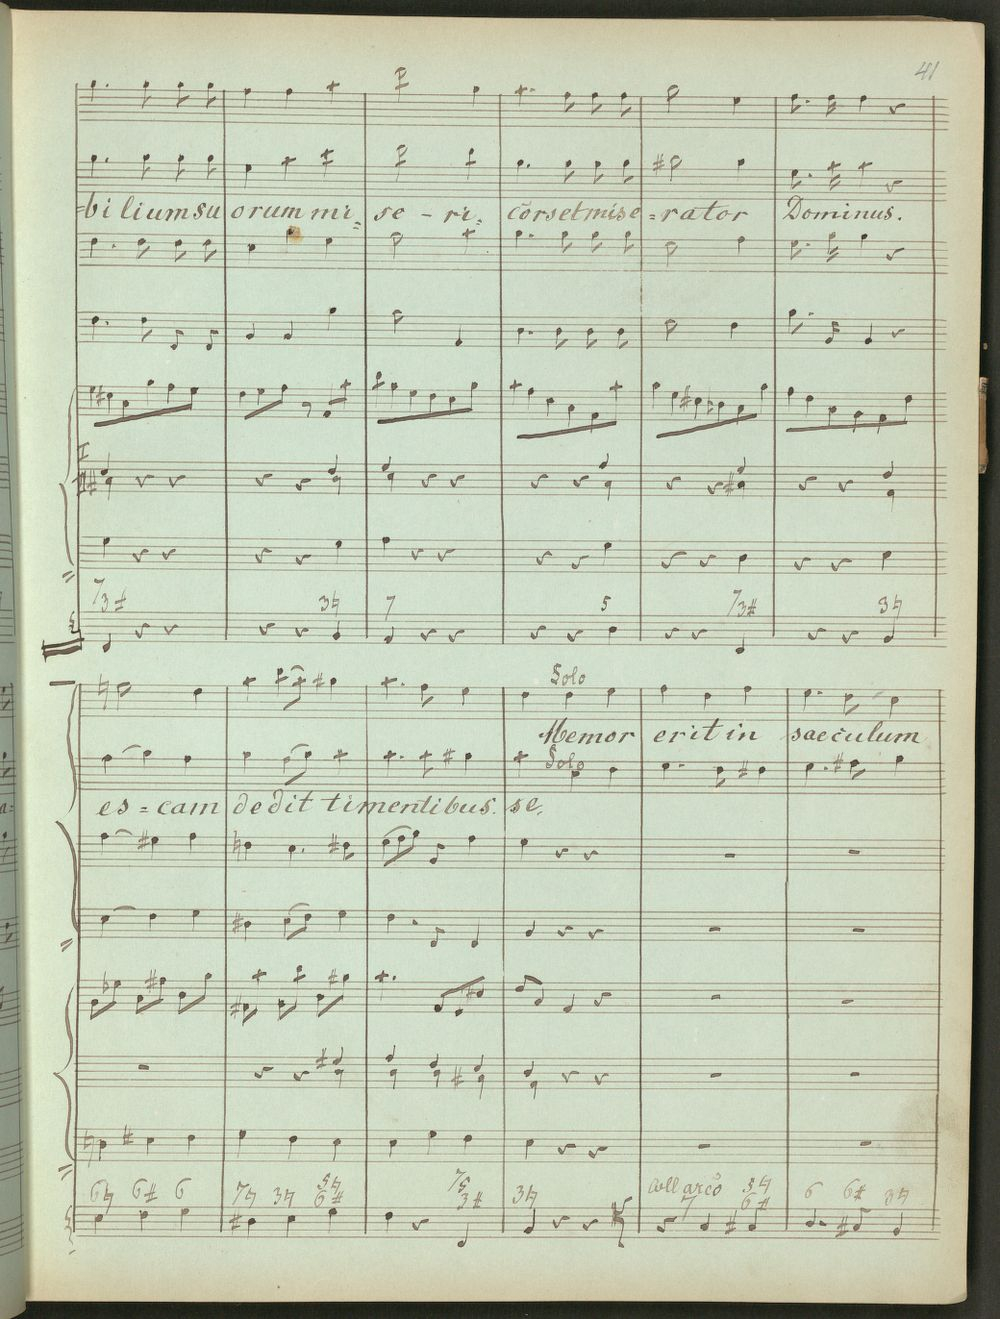 41
=bi lium su orum mi= se - ri= cors et mise = rator Dominus.
7 3♯ 3♮ 7 5 7 3♯ 3♮
Solo
Memor erit in saeculum
Solo
es = cam dedit timentibus. se.
6♮ 6♯ 6 7♮ 3♮ 5♮ 6♯ 7 5 3♯ 3♮ coll arco 7 5♮ 6♯ 6 6♯ 3♮